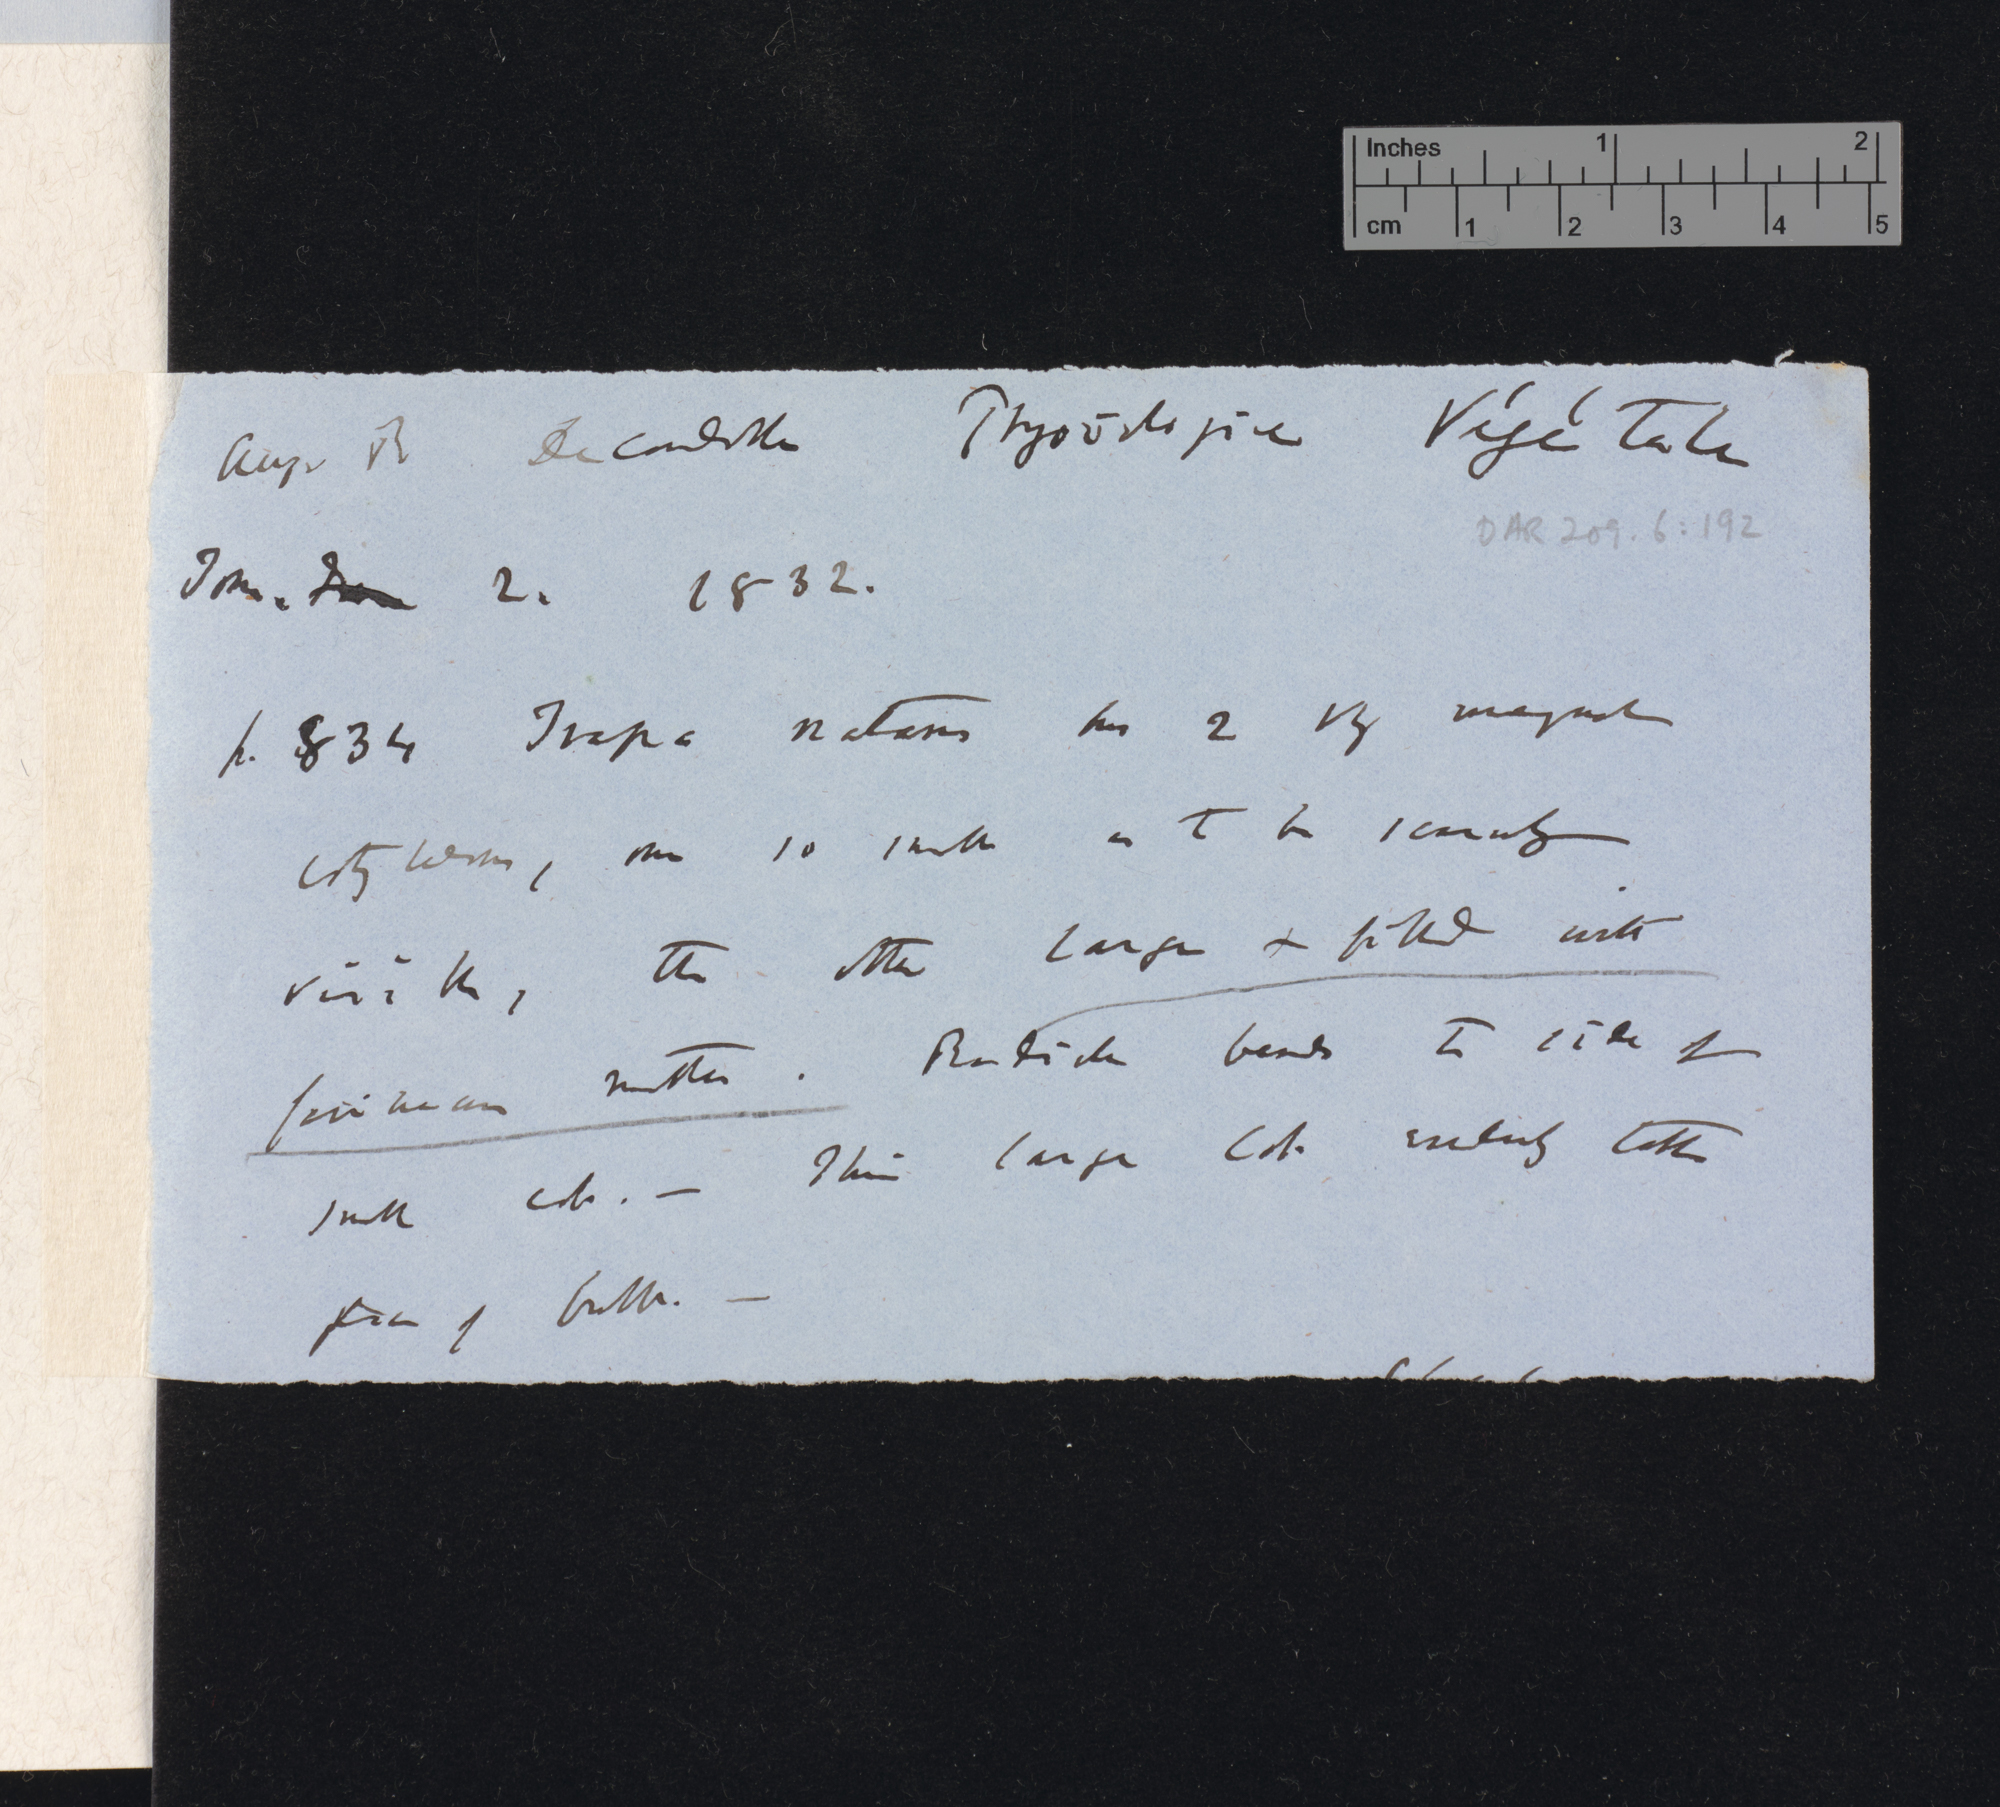 Inches 1 2
cm 1 2 3 4 5
Aug. P. Decandolle Physiologie Végétale
DAR 209.6:192
Tom. 2. 1832.
p. 834 Trapa natans has 2 very unequal
cotyledons, one so small as to be scarcely
visible, the other large & filled with
farinaceous matter. Radicle bends to side of
small cot. — This large cot. evidently takes
place of bulb. —